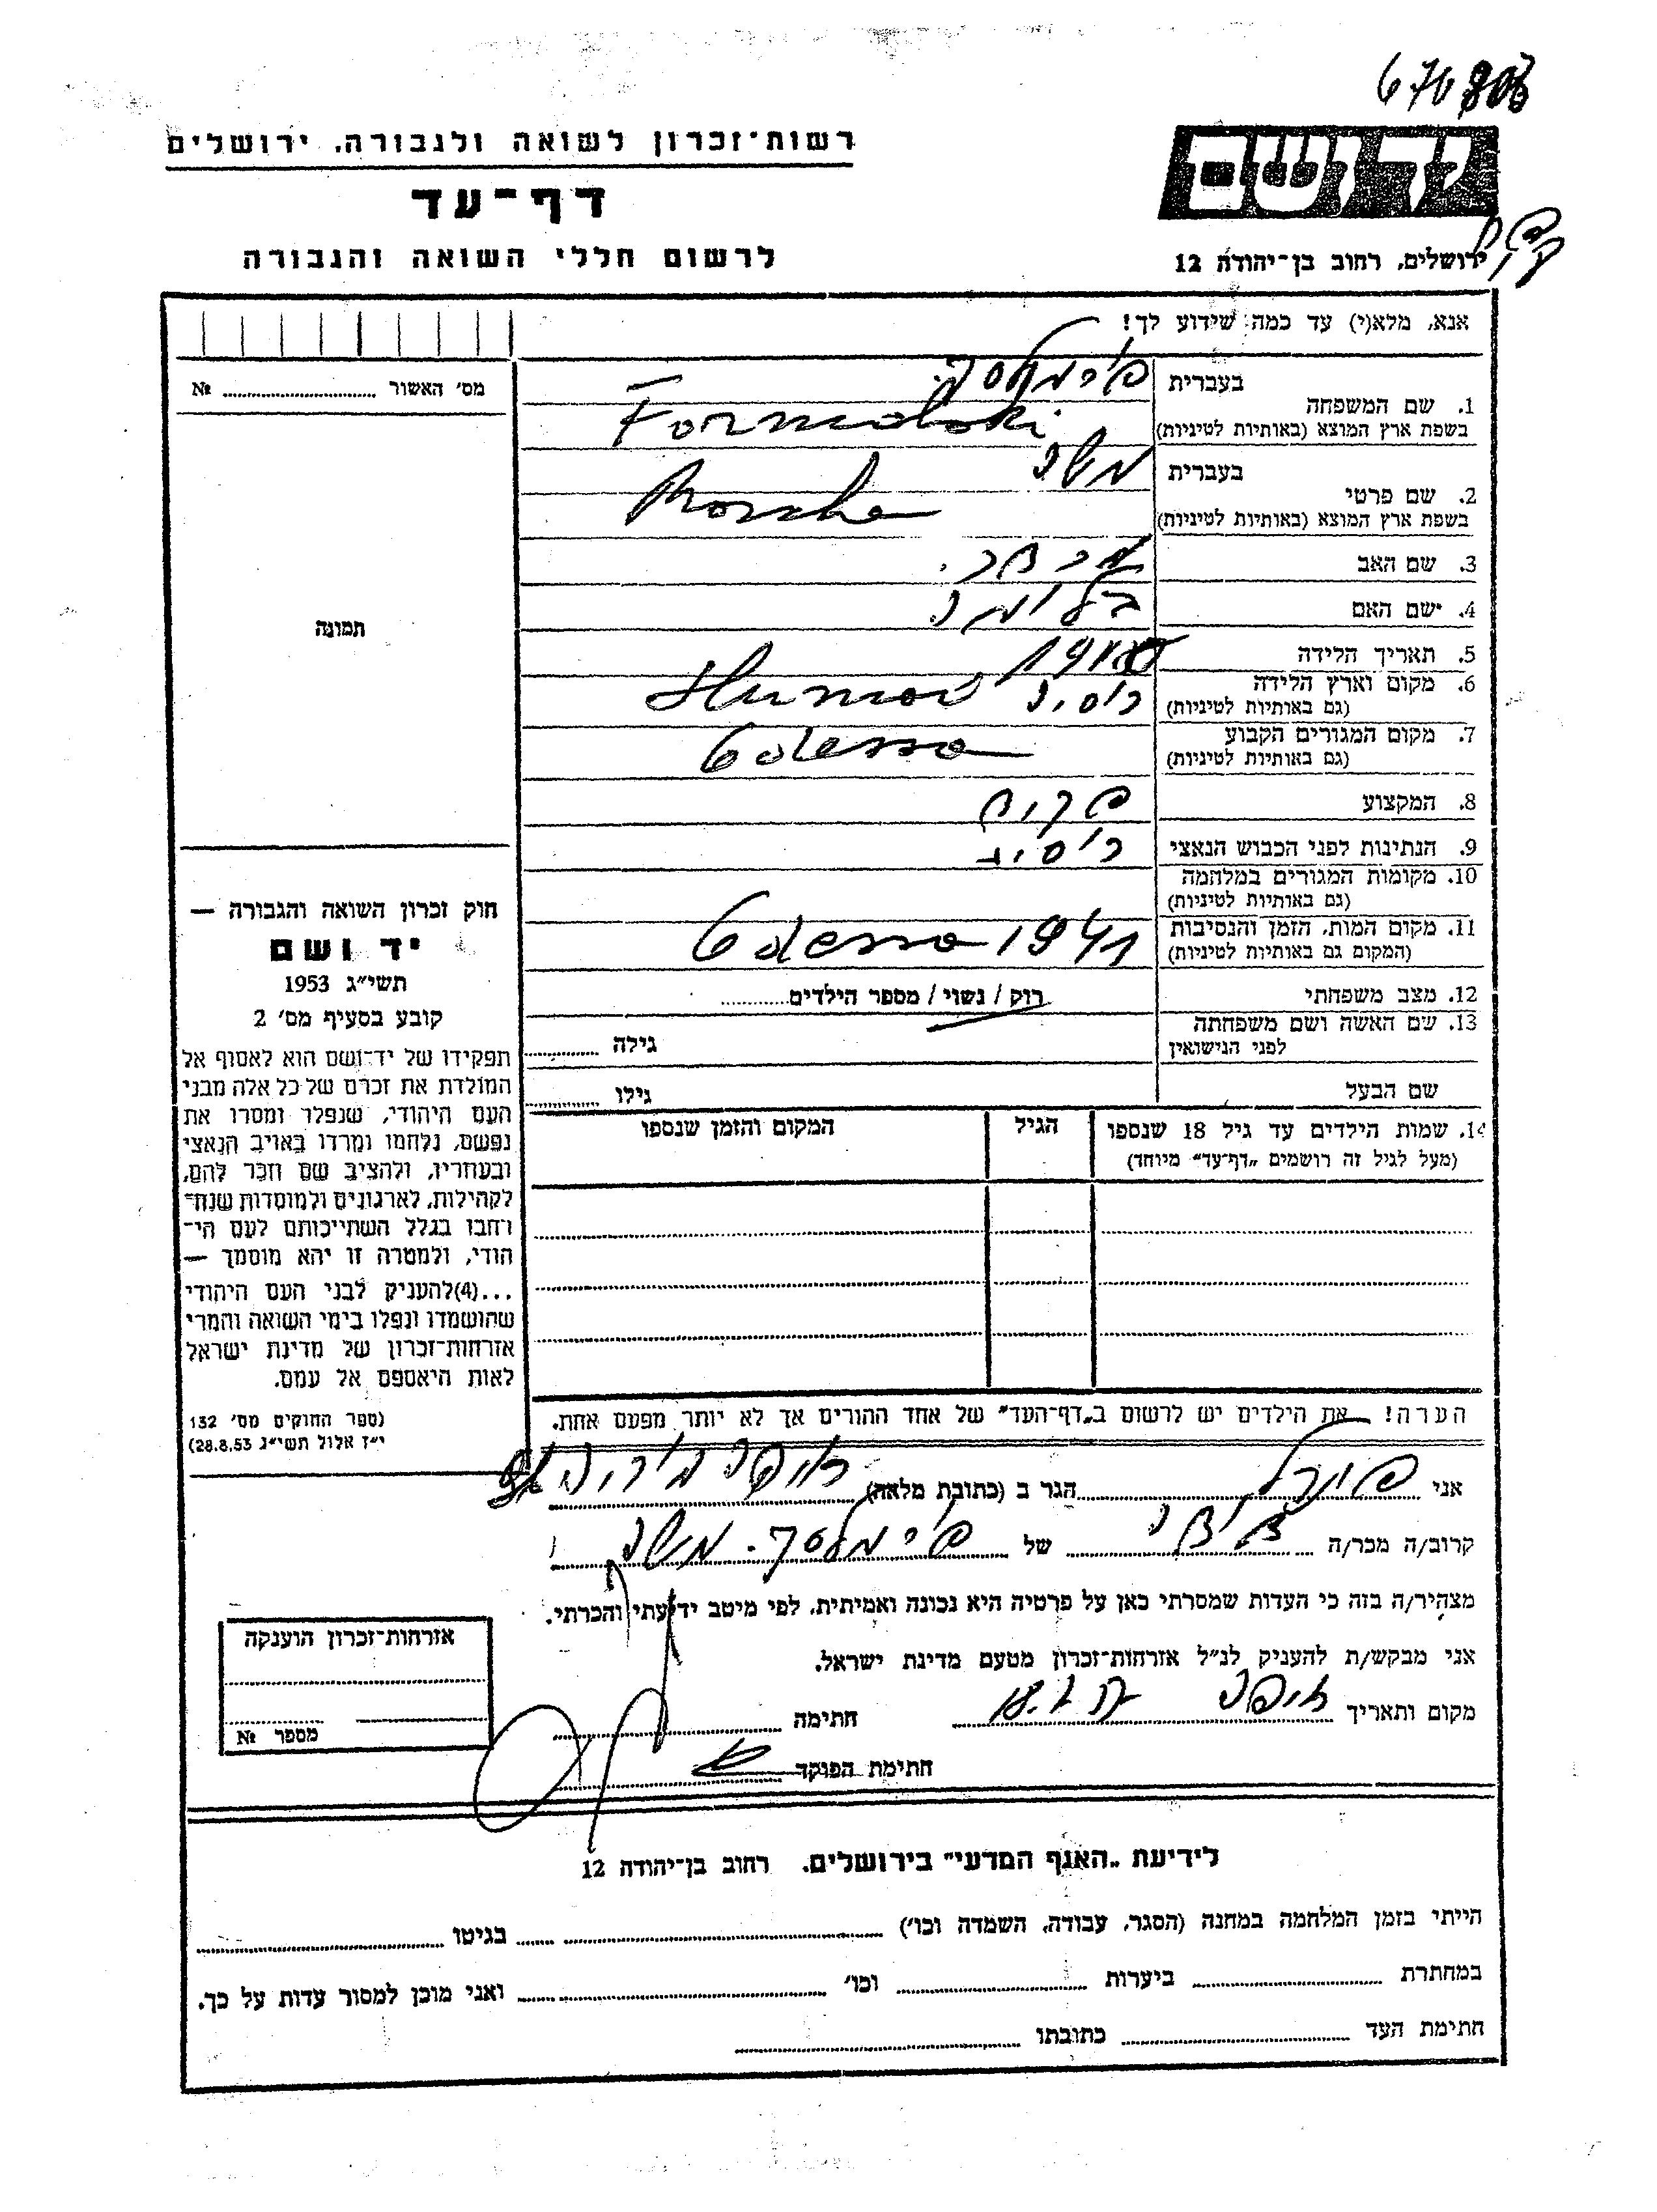 רשות־זכרון לשואה ולגבורה, ירושלים
דף־עד
לרשום חללי השואה והגבורה
ידושם
ירושלים, רחוב בן־יהודה 12
אנא, מלא(י) עד כמה שידוע לך!
מס׳ האשור № 
1. שם המשפחה בעברית
בשפת ארץ המוצא (באותיות לטיניות) Formalski
2. שם פרטי בעברית משה
בשפת ארץ המוצא (באותיות לטיניות) Morche
3. שם האב
4. שם האם
5. תאריך הלידה
6. מקום וארץ הלידה רוסיה
(גם באותיות לטיניות)
7. מקום המגורים הקבוע Odessa
(גם באותיות לטיניות)
8. המקצוע פקיד
9. הנתינות לפני הכבוש הנאצי
10. מקומות המגורים במלחמה
(גם באותיות לטיניות)
11. מקום המות, הזמן והנסיבות Odessa 1941
(המקום גם באותיות לטיניות)
12. מצב משפחתי רוק / נשוי / מספר הילדים
13. שם האשה ושם משפחתה גילה
לפני הנישואין
שם הבעל גילו
14. שמות הילדים עד גיל 18 שנספו הגיל המקום והזמן שנספו
(מעל לגיל זה רושמים „דף־עד״ מיוחד)
הערה! את הילדים יש לרשום ב„דף־העד״ של אחד ההורים אך לא יותר מפעם אחת.
תמונה
חוק זכרון השואה והגבורה —
יד ושם
תשי״ג 1953
קובע בסעיף מס׳ 2
תפקידו של יד־ושם הוא לאסוף אל
המולדת את זכרם של כל אלה מבני
העם היהודי, שנפלו ומסרו את
נפשם, נלחמו ומרדו באויב הנאצי
ובעוזריו, ולהציב שם וזכר להם,
לקהילות, לארגונים ולמוסדות שנח־
רבו בגלל השתייכותם לעם הי־
הודי, ולמטרה זו יהא מוסמך —
...(4)להעניק לבני העם היהודי
שהושמדו ונפלו בימי השואה והמרי
אזרחות־זכרון של מדינת ישראל
לאות היאספם אל עמם.
(ספר החוקים מס׳ 132
י״ז אלול תשי״ג 28.8.53)
אני הגר ב (כתובת מלאה) חיפה
קרוב/ה מכר/ה של משה
מצהיר/ה בזה כי העדות שמסרתי כאן על פרטיה היא נכונה ואמיתית, לפי מיטב ידיעתי והכרתי.
אני מבקש/ת להעניק לנ״ל אזרחות־זכרון מטעם מדינת ישראל.
מקום ותאריך חיפה חתימה
חתימת הפוקד
אזרחות־זכרון הוענקה
מספר №
לידיעת „האגף המדעי״ בירושלים, רחוב בן־יהודה 12
הייתי בזמן המלחמה במחנה (הסגר, עבודה, השמדה וכו׳) בגיטו
במחתרת ביערות וכו׳ ואני מוכן למסור עדות על כך.
חתימת העד כתובתו